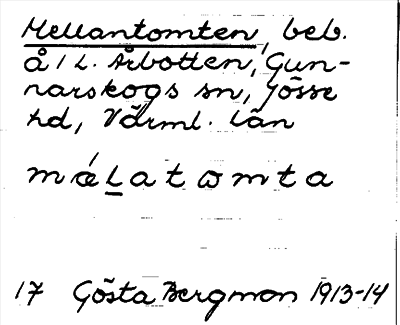 Mellantomten, beb.
å / L. Årbotten, Gun-
narskogs sn, Jösse
hd, Värml. län
mǽl̲atɷmta
17 Gösta Bergman 1913-14